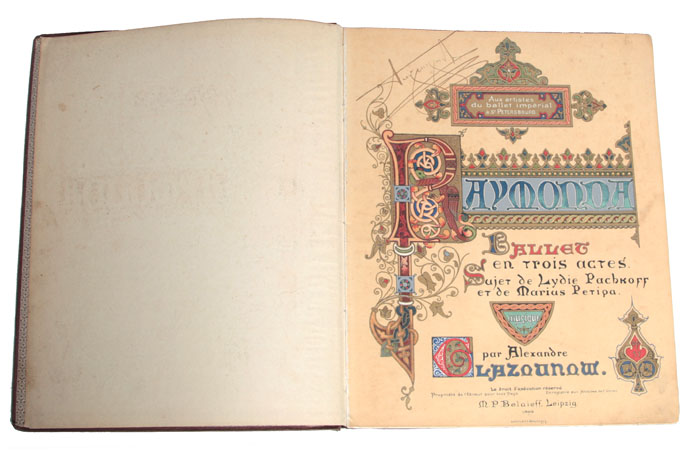 Aux artistes
du ballet impérial
de St PETERSBOURG
RAYMONDA
BALLET
en trois actes.
Sujet de Lydie Pachkoff
et de Marius Petipa.
MUSIQUE
par Alexandre
GLAZOUNOW.
Le droit d'exécution réservé
Propriété de l'Éditeur pour tous Pays
M. P. Belaieff, Leipzig